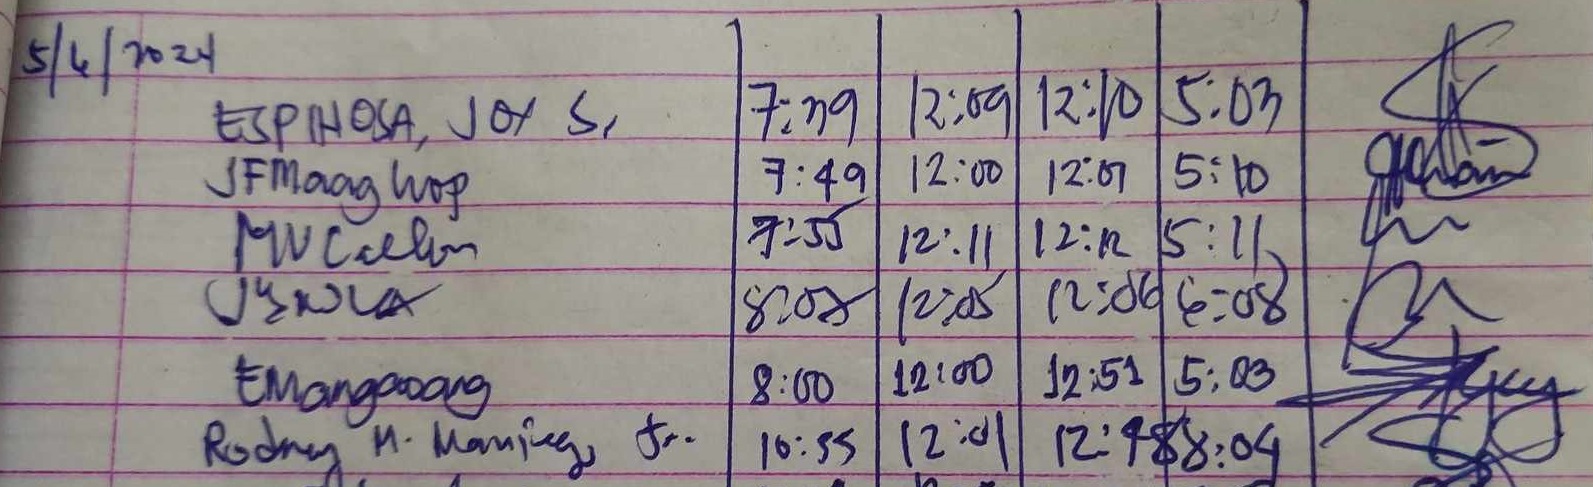 5/6/2024
ESPINOSA, JOY S. 7:39 12:09 12:10 5:03
JFMaaghop 7:49 12:00 12:01 5:10
MV 7:55 12:11 12:12 5:11
8:08 12:05 12:06 6:08
EMangaoang 8:00 12:00 12:51 5:03
Rodney M. Jr. 10:55 12:01 12:48 8:04